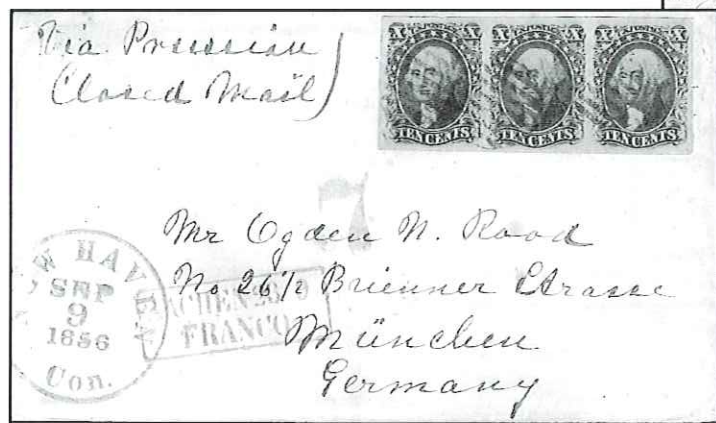 Via Prussian
Closed Mail
X X X X X X
TEN CENTS TEN CENTS TEN CENTS
7
Mr Ogden N. Rood
No 26 1/2 Brienner Strasse
München
Germany
NEW HAVEN
SEP
9
1856
Con.
ACHEN
FRANCO